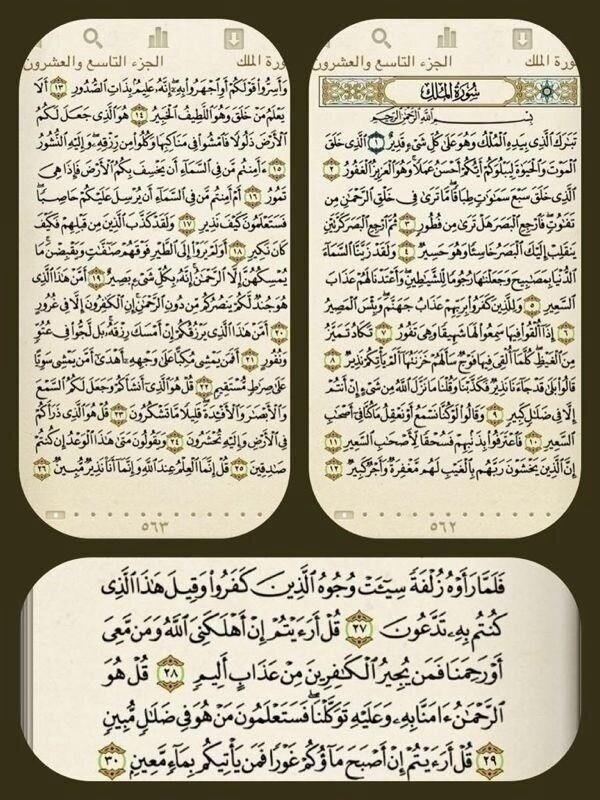 ورة الملك الجزء التاسع والعشرون
سُورَةُ المُلْكِ
بِسْمِ ٱللَّهِ ٱلرَّحْمَٰنِ ٱلرَّحِيمِ
تَبَٰرَكَ ٱلَّذِى بِيَدِهِ ٱلْمُلْكُ وَهُوَ عَلَىٰ كُلِّ شَىْءٍ قَدِيرٌ ١ ٱلَّذِى خَلَقَ
ٱلْمَوْتَ وَٱلْحَيَوٰةَ لِيَبْلُوَكُمْ أَيُّكُمْ أَحْسَنُ عَمَلًا ۚ وَهُوَ ٱلْعَزِيزُ ٱلْغَفُورُ ٢
ٱلَّذِى خَلَقَ سَبْعَ سَمَٰوَٰتٍ طِبَاقًا ۖ مَّا تَرَىٰ فِى خَلْقِ ٱلرَّحْمَٰنِ مِن
تَفَٰوُتٍ ۖ فَٱرْجِعِ ٱلْبَصَرَ هَلْ تَرَىٰ مِن فُطُورٍ ٣ ثُمَّ ٱرْجِعِ ٱلْبَصَرَ كَرَّتَيْنِ
يَنقَلِبْ إِلَيْكَ ٱلْبَصَرُ خَاسِئًا وَهُوَ حَسِيرٌ ٤ وَلَقَدْ زَيَّنَّا ٱلسَّمَآءَ
ٱلدُّنْيَا بِمَصَٰبِيحَ وَجَعَلْنَٰهَا رُجُومًا لِّلشَّيَٰطِينِ ۖ وَأَعْتَدْنَا لَهُمْ عَذَابَ
ٱلسَّعِيرِ ٥ وَلِلَّذِينَ كَفَرُوا۟ بِرَبِّهِمْ عَذَابُ جَهَنَّمَ ۖ وَبِئْسَ ٱلْمَصِيرُ
٦ إِذَآ أُلْقُوا۟ فِيهَا سَمِعُوا۟ لَهَا شَهِيقًا وَهِىَ تَفُورُ ٧ تَكَادُ تَمَيَّزُ
مِنَ ٱلْغَيْظِ ۖ كُلَّمَآ أُلْقِىَ فِيهَا فَوْجٌ سَأَلَهُمْ خَزَنَتُهَآ أَلَمْ يَأْتِكُمْ نَذِيرٌ ٨
قَالُوا۟ بَلَىٰ قَدْ جَآءَنَا نَذِيرٌ فَكَذَّبْنَا وَقُلْنَا مَا نَزَّلَ ٱللَّهُ مِن شَىْءٍ إِنْ أَنتُمْ
إِلَّا فِى ضَلَٰلٍ كَبِيرٍ ٩ وَقَالُوا۟ لَوْ كُنَّا نَسْمَعُ أَوْ نَعْقِلُ مَا كُنَّا فِىٓ أَصْحَٰبِ
ٱلسَّعِيرِ ١٠ فَٱعْتَرَفُوا۟ بِذَنۢبِهِمْ فَسُحْقًا لِّأَصْحَٰبِ ٱلسَّعِيرِ ١١
إِنَّ ٱلَّذِينَ يَخْشَوْنَ رَبَّهُم بِٱلْغَيْبِ لَهُم مَّغْفِرَةٌ وَأَجْرٌ كَبِيرٌ ١٢
٥٦٢
ورة الملك الجزء التاسع والعشرون
وَأَسِرُّوا۟ قَوْلَكُمْ أَوِ ٱجْهَرُوا۟ بِهِۦٓ ۖ إِنَّهُۥ عَلِيمٌۢ بِذَاتِ ٱلصُّدُورِ ١٣ أَلَا
يَعْلَمُ مَنْ خَلَقَ وَهُوَ ٱللَّطِيفُ ٱلْخَبِيرُ ١٤ هُوَ ٱلَّذِى جَعَلَ لَكُمُ
ٱلْأَرْضَ ذَلُولًا فَٱمْشُوا۟ فِى مَنَاكِبِهَا وَكُلُوا۟ مِن رِّزْقِهِۦ ۖ وَإِلَيْهِ ٱلنُّشُورُ
١٥ ءَأَمِنتُم مَّن فِى ٱلسَّمَآءِ أَن يَخْسِفَ بِكُمُ ٱلْأَرْضَ فَإِذَا هِىَ
تَمُورُ ١٦ أَمْ أَمِنتُم مَّن فِى ٱلسَّمَآءِ أَن يُرْسِلَ عَلَيْكُمْ حَاصِبًا ۖ
فَسَتَعْلَمُونَ كَيْفَ نَذِيرِ ١٧ وَلَقَدْ كَذَّبَ ٱلَّذِينَ مِن قَبْلِهِمْ فَكَيْفَ
كَانَ نَكِيرِ ١٨ أَوَلَمْ يَرَوْا۟ إِلَى ٱلطَّيْرِ فَوْقَهُمْ صَٰٓفَّٰتٍ وَيَقْبِضْنَ ۚ مَا
يُمْسِكُهُنَّ إِلَّا ٱلرَّحْمَٰنُ ۚ إِنَّهُۥ بِكُلِّ شَىْءٍۭ بَصِيرٌ ١٩ أَمَّنْ هَٰذَا ٱلَّذِى
هُوَ جُندٌ لَّكُمْ يَنصُرُكُم مِّن دُونِ ٱلرَّحْمَٰنِ ۚ إِنِ ٱلْكَٰفِرُونَ إِلَّا فِى غُرُورٍ
٢٠ أَمَّنْ هَٰذَا ٱلَّذِى يَرْزُقُكُمْ إِنْ أَمْسَكَ رِزْقَهُۥ ۚ بَل لَّجُّوا۟ فِى عُتُوٍّ
وَنُفُورٍ ٢١ أَفَمَن يَمْشِى مُكِبًّا عَلَىٰ وَجْهِهِۦٓ أَهْدَىٰٓ أَمَّن يَمْشِى سَوِيًّا
عَلَىٰ صِرَٰطٍ مُّسْتَقِيمٍ ٢٢ قُلْ هُوَ ٱلَّذِىٓ أَنشَأَكُمْ وَجَعَلَ لَكُمُ ٱلسَّمْعَ
وَٱلْأَبْصَٰرَ وَٱلْأَفْـِٔدَةَ ۖ قَلِيلًا مَّا تَشْكُرُونَ ٢٣ قُلْ هُوَ ٱلَّذِى ذَرَأَكُمْ
فِى ٱلْأَرْضِ وَإِلَيْهِ تُحْشَرُونَ ٢٤ وَيَقُولُونَ مَتَىٰ هَٰذَا ٱلْوَعْدُ إِن كُنتُمْ
صَٰدِقِينَ ٢٥ قُلْ إِنَّمَا ٱلْعِلْمُ عِندَ ٱللَّهِ وَإِنَّمَآ أَنَا۠ نَذِيرٌ مُّبِينٌ ٢٦
٥٦٣
فَلَمَّا رَأَوْهُ زُلْفَةً سِيٓـَٔتْ وُجُوهُ ٱلَّذِينَ كَفَرُوا۟ وَقِيلَ هَٰذَا ٱلَّذِى
كُنتُم بِهِۦ تَدَّعُونَ ٢٧ قُلْ أَرَءَيْتُمْ إِنْ أَهْلَكَنِىَ ٱللَّهُ وَمَن مَّعِىَ
أَوْ رَحِمَنَا فَمَن يُجِيرُ ٱلْكَٰفِرِينَ مِنْ عَذَابٍ أَلِيمٍ ٢٨ قُلْ هُوَ
ٱلرَّحْمَٰنُ ءَامَنَّا بِهِۦ وَعَلَيْهِ تَوَكَّلْنَا ۖ فَسَتَعْلَمُونَ مَنْ هُوَ فِى ضَلَٰلٍ مُّبِينٍ
٢٩ قُلْ أَرَءَيْتُمْ إِنْ أَصْبَحَ مَآؤُكُمْ غَوْرًا فَمَن يَأْتِيكُم بِمَآءٍ مَّعِينٍۭ ٣٠